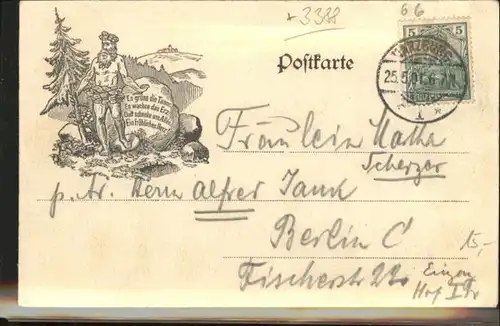 +3388
66
5 5
HARZBURG
25.5.01. 6-7N.
1 *
Postkarte
Es grüne die Tanne,
Es wachse das Erz,
Gott schenke uns Allen
Ein fröhliches Herz.
Fräulein Käthe
Scherzer
p. Ad. Herrn Alfred Jank
Berlin C
15,-
Fischerstr. 22
Eing. on
Hof I Tr